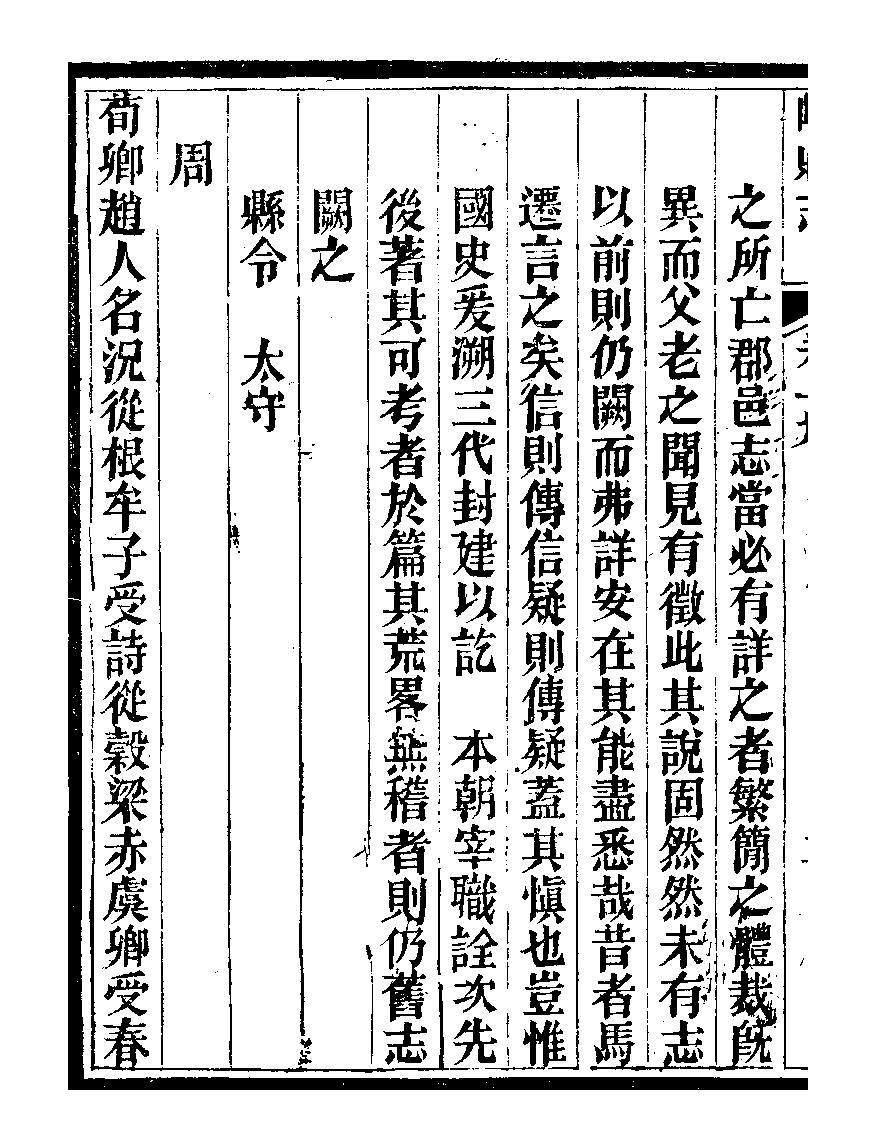 之所亡郡邑志當必有詳之者繁簡之體裁旣
異而父老之聞見有徵此其說固然然未有志
以前則仍闕而弗詳安在其能盡悉哉昔者馬
遷言之矣信則傳信疑則傳疑蓋其愼也豈惟
國史爰溯三代封建以訖　本朝宰職詮次先
後著其可考者於篇其荒畧無稽者則仍舊志
闕之
縣令　太守
周
荀卿趙人名況從根牟子受詩從穀梁赤虞卿受春